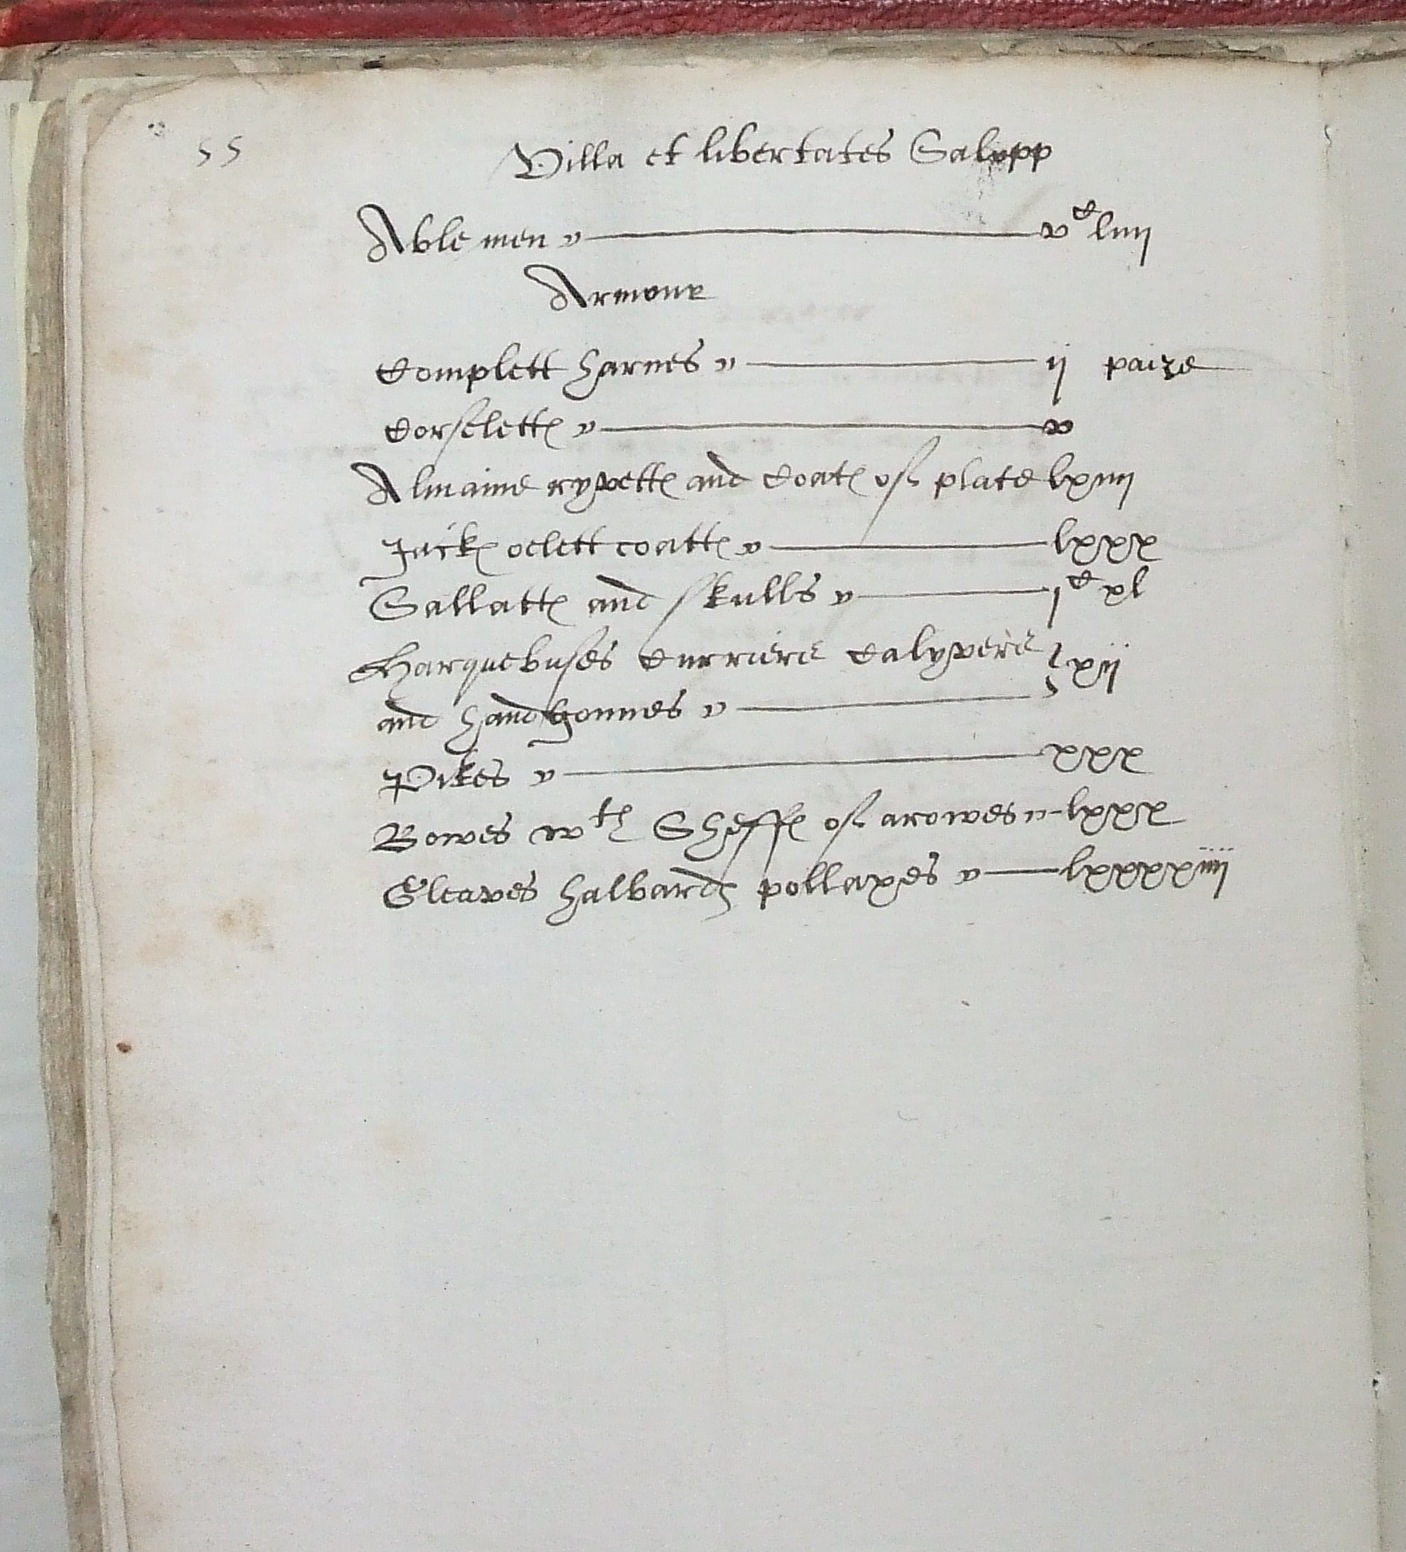 55
Villa et libertates Salopp
Able men v v^c liiij
Armour
Complett harnes v ij paire
Corselett℮ v v
Almaine ryvett℮ and Coat℮ of plate lxiiij
Jack℮ oelett coatt℮ v lxxx
Sallatt℮ and skulls v j^c xl
Harquebuses Curriere Calyvere } xij
and handgonnes v
Pikes v xxx
Bowes w^th Sheff℮ of arowes v lxxx
Gleaves halbard℮ pollaxes v lxxxxiiij